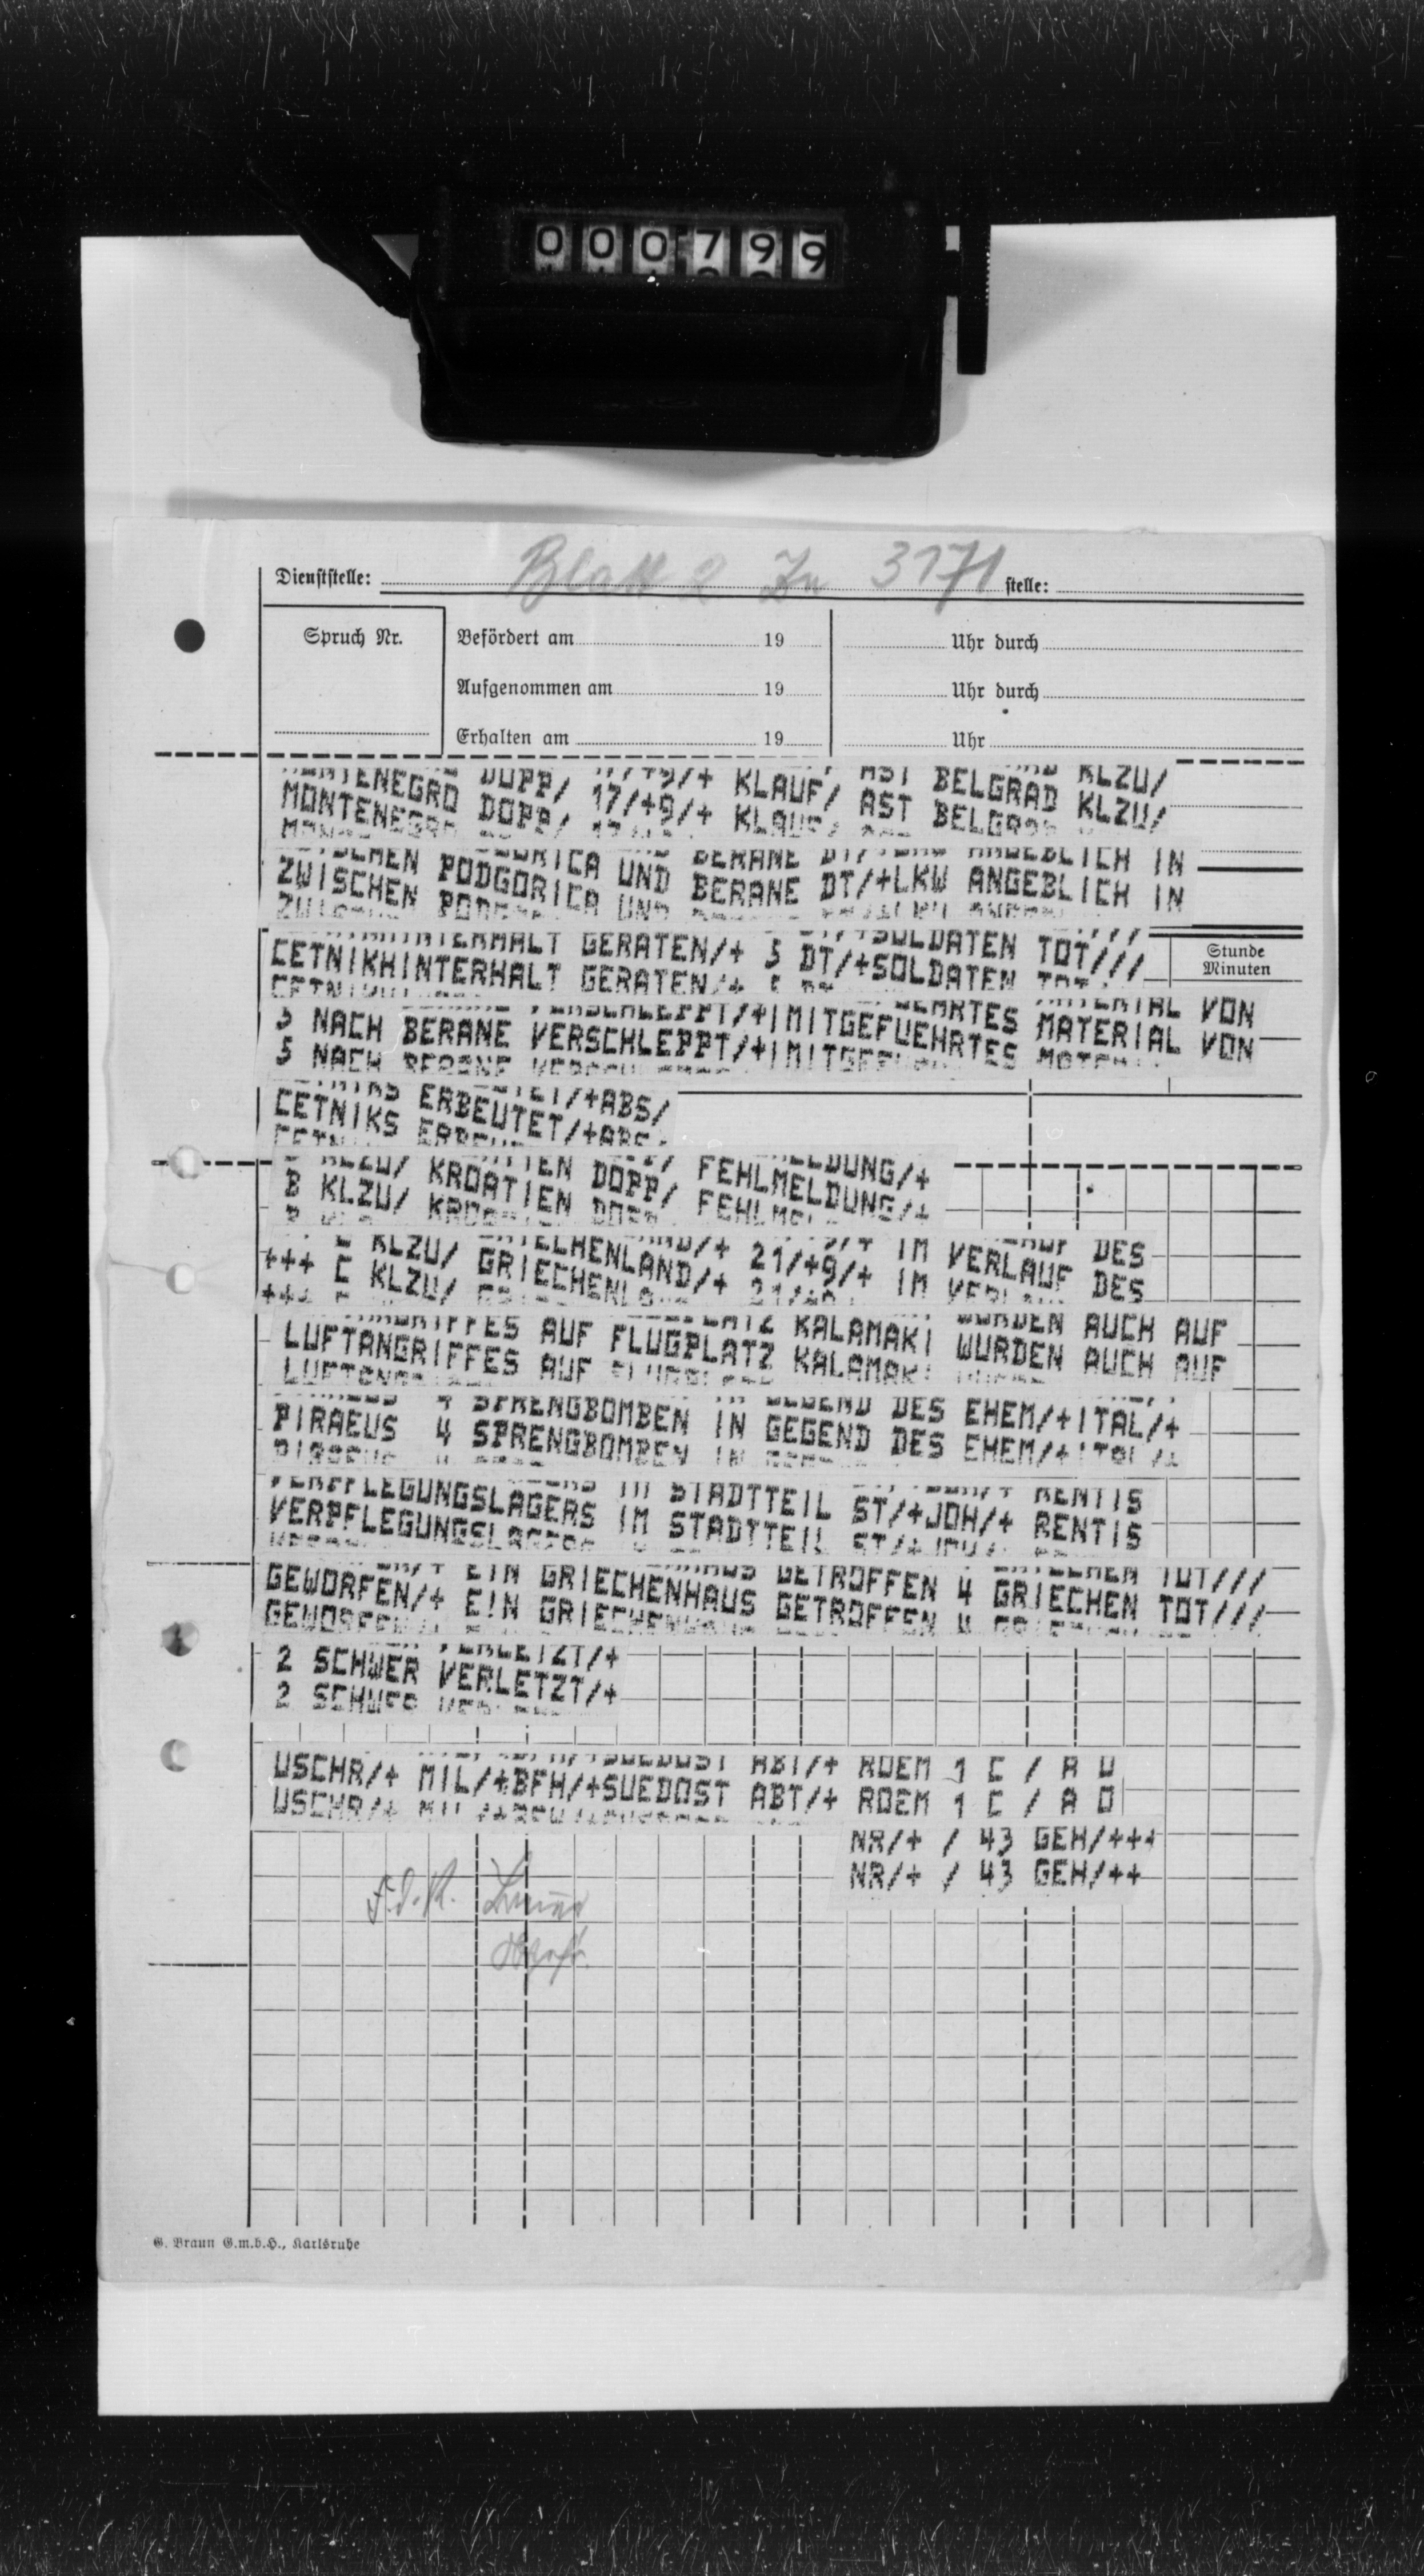 000799
Dienststelle: Blatt 2 Zu 3171 stelle:
Spruch Nr. Befördert am 19 Uhr durch
Aufgenommen am 19 Uhr durch
Erhalten am 19 Uhr
MONTENEGRO DOPP/ 17/+9/+ KLAUF/ AST BELGRAD KLZU/
ZWISCHEN PODGORICA UND BERANE DT/+LKW ANGEBLICH IN
CETNIKHINTERHALT GERATEN/+ 5 DT/+SOLDATEN TOT///
Stunde
Minuten
5 NACH BERANE VERSCHLEPPT/+|MITGEFUEHRTES MATERIAL VON
CETNIKS ERBEUTET/+ABS/
B KLZU/ KROATIEN DOPP/ FEHLMELDUNG/+
+++ C KLZU/ GRIECHENLAND/+ 21/+9/+ IM VERLAUF DES
LUFTANGRIFFES AUF FLUGPLATZ KALAMAKI WURDEN AUCH AUF
PIRAEUS 4 SPRENGBOMBEN IN GEGEND DES EHEM/+ITAL/+
VERPFLEGUNGSLAGERS IM STADTTEIL ST/+JOH/+ RENTIS
GEWORFEN/+ EIN GRIECHENHAUS GETROFFEN 4 GRIECHEN TOT///
2 SCHWER VERLETZT/+
USCHR/+ MIL/+BFH/+SUEDOST ABT/+ ROEM 1 C / A O
NR/+ / 43 GEH/+++
NR/+ / 43 GEH/++
F.d.R.
G. Braun G.m.b.H., Karlsruhe